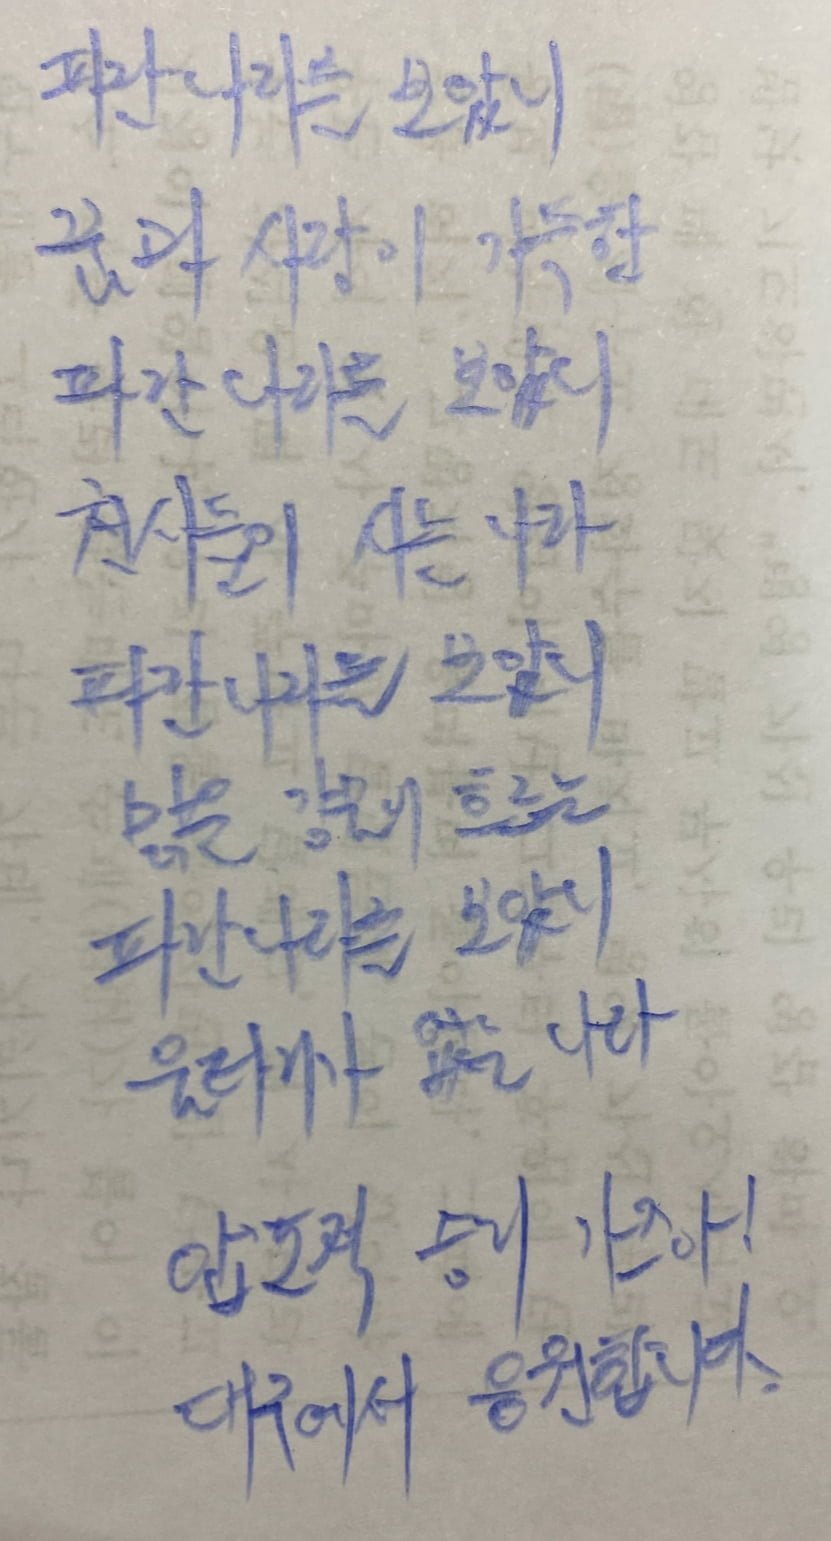 파란나라를 보았니
꿈과 사랑이 가득한
파란나라를 보았니
천사들이 사는 나라
파란나라를 보았니
맑은 강물이 흐르는
파란나라를 보았니
울타리가 없는 나라
압도적 승리 가즈아!
대구에서 응원합니다.